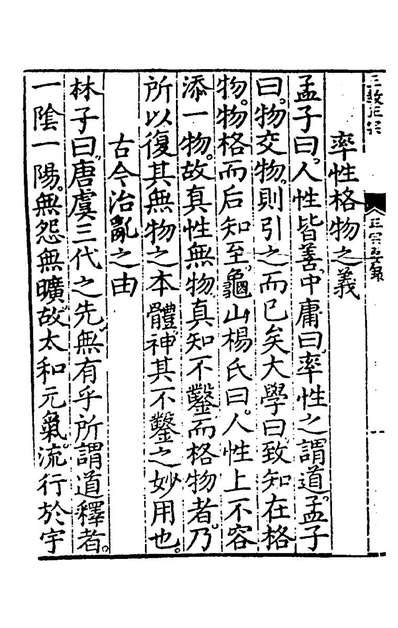 三教正宗
正宗要錄
一
率性格物之義
孟子曰人性皆善中庸曰率性之謂道孟子
曰物交物則引之而已矣大學曰致知在格
物物格而后知至龜山楊氏曰人性上不容
添一物故真性無物真知不鑿而格物者乃
所以復其無物之本體神其不鑿之妙用也
古今治亂之由
林子曰唐虞三代之先無有乎所謂道釋者
一陰一陽無怨無曠故太和元氣流行於宇